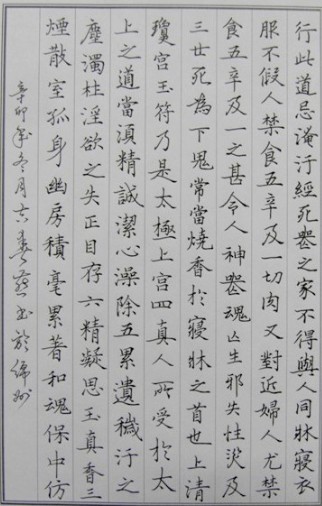 行此道忌淹汙經死喪之家不得與人同牀寢衣
服不假人禁食五辛及一切肉又對近婦人尤禁
食五辛及一之甚令人神喪魂亡生邪失性災及
三世死為下鬼常當燒香於寢牀之首也上清
瓊宮玉符乃是太極上宮四真人所受於太
上之道當須精誠潔心澡除五累遺穢汙之
塵濁杜淫欲之失正目存六精凝思玉真香三
煙散室孤身幽房積毫累著和魂保中仿
辛卯年冬月書於綿州